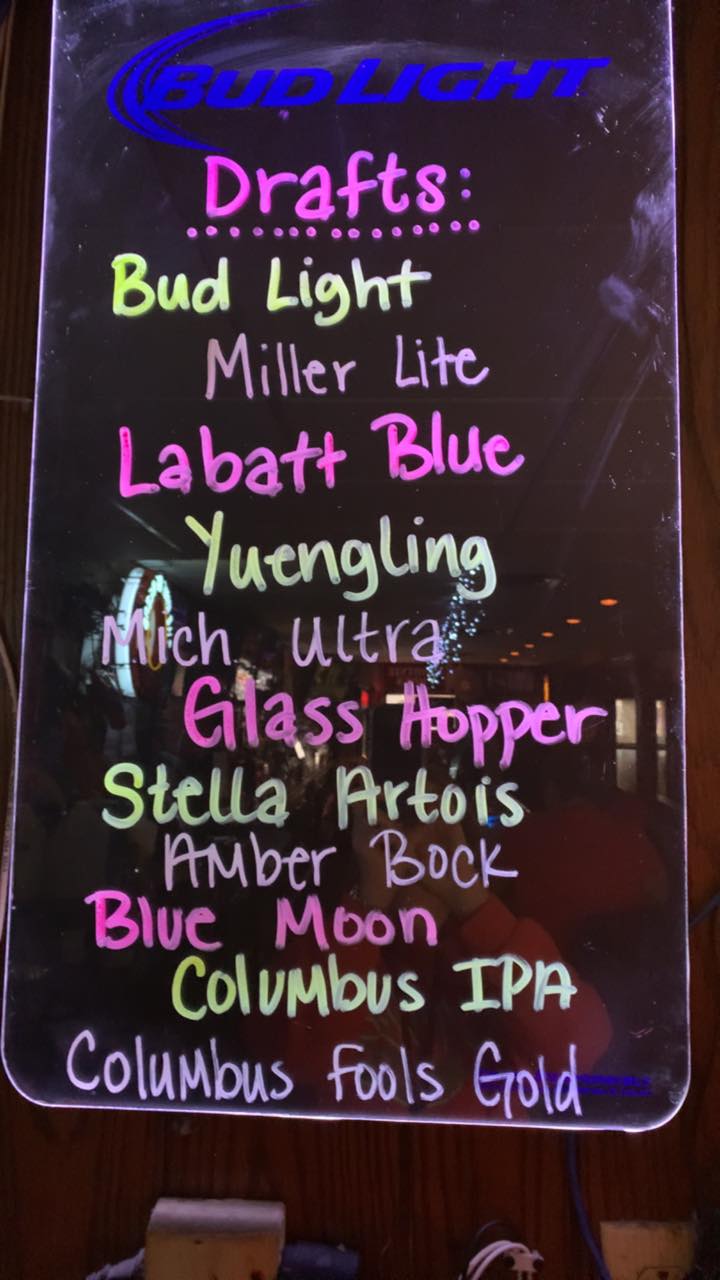 BUD LIGHT
Drafts:
Bud Light
Miller Lite
Labatt Blue
Yuengling
Mich Ultra
Glass Hopper
Stella Artois
Amber Bock
Blue Moon
Columbus IPA
Columbus Fools Gold